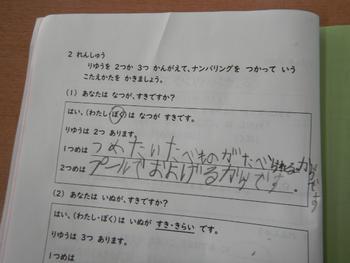 2 れんしゅう
りゆうを 2つか 3つ かんがえて、ナンバリングを つかって いう
こたえかたを かきましょう。
(1) あなたは なつが、すきですか？
はい、(わたし・ぼく)は なつが すきです。
りゆうは 2つ あります。
1つめは つめたいたべものがたべられるからです
2つめは プールでおよげるからです。
(2) あなたは いぬが、すきですか？
はい、(わたし・ぼく)は いぬが すき・きらい です。
りゆうは 3つ あります。
1つめは